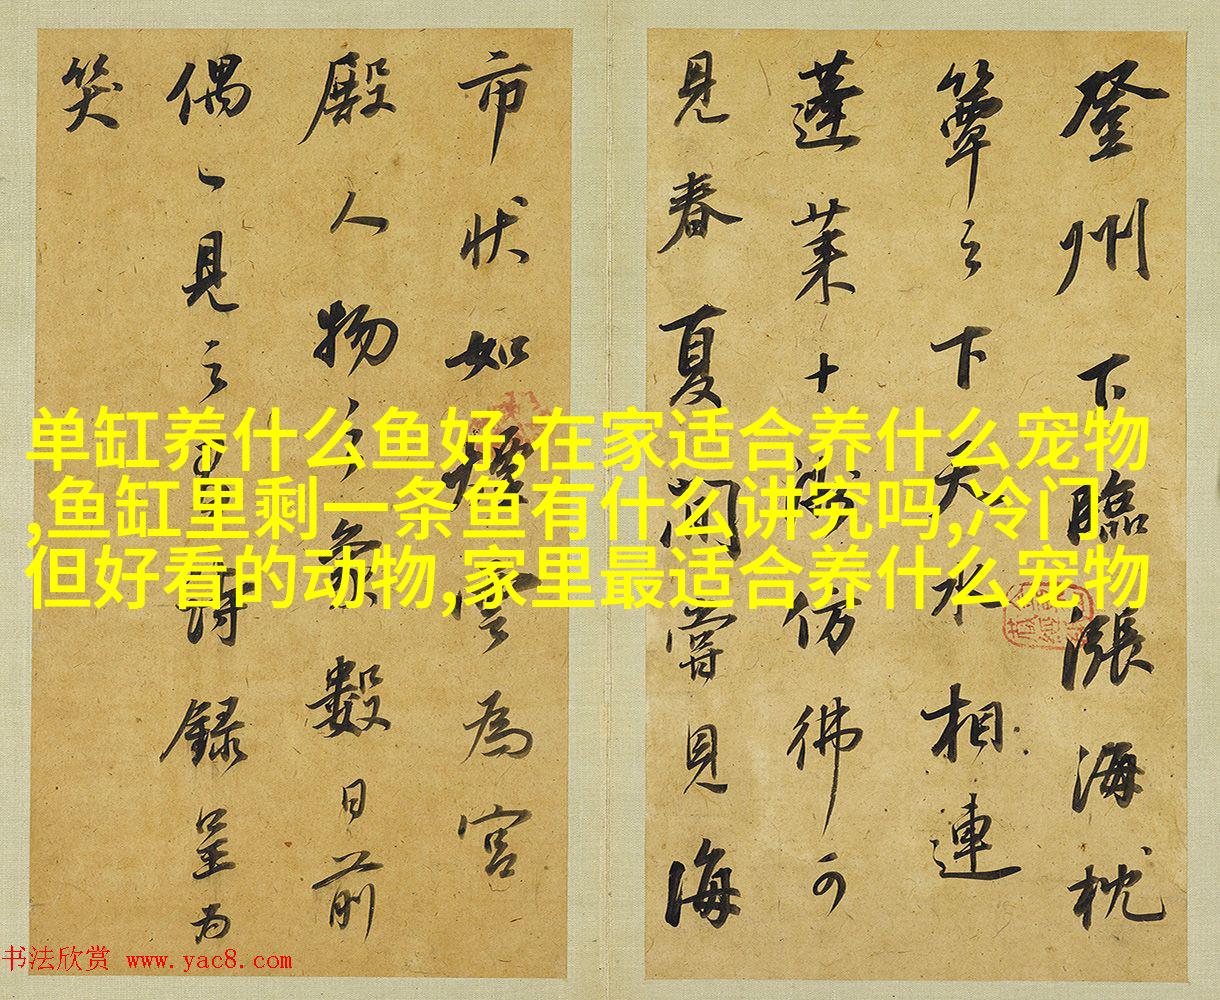 登州下臨漲海枕
簟之下天水相連
蓬莱十洲仿彿可
見春夏间嘗見海
市状如煙雲為宫
殿人物之象數日前
偶一見之有詩録呈为
笑
单缸养什么鱼好,在家适合养什么宠物
,鱼缸里剩一条鱼有什么讲究吗,冷门
但好看的动物,家里最适合养什么宠物
书法欣赏 www.yac8.com